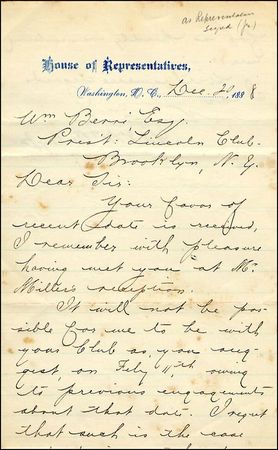 as Representative
House of Representatives,
Washington, D. C., Dec. 20, 1898
Wm Berri, Esq.
Prest. Lincoln Club.
Brooklyn, N. Y.
Dear Sir:
Your favor of
recent date is received,
I remember with pleasure
having met you at Mr.
Miller's reception.
It will not be pos-
sible for me to be with
your Club as, you sug
gest, on Feby 11th owing
to previous engagements
about that date. I regret
that such is the case